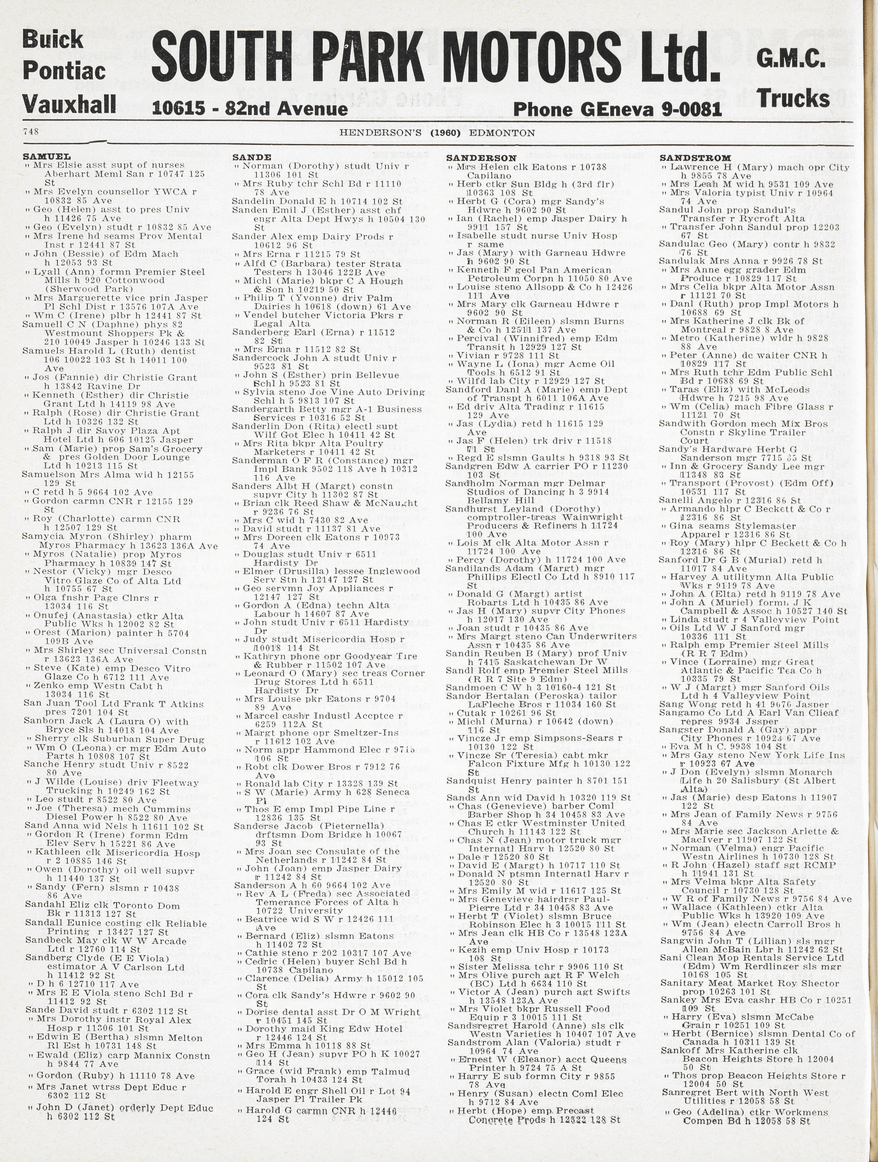 Buick
Pontiac
Vauxhall
SOUTH PARK MOTORS Ltd.
10615 - 82nd Avenue
Phone GEneva 9-0081
G.M.C.
Trucks
748
HENDERSON'S (1960) EDMONTON
SAMUEL
" Mrs Elsie asst supt of nurses
Aberhart Meml San r 10747 125
St
" Mrs Evelyn counsellor YWCA r
10832 85 Ave
" Geo (Helen) asst to pres Univ
h 11426 75 Ave
" Geo (Evelyn) studt r 10832 85 Ave
" Mrs Irene hd seams Prov Mental
Inst r 12441 87 St
" John (Bessie) of Edm Mach
h 12053 93 St
" Lyall (Ann) formn Premier Steel
Mills h 920 Cottonwood
(Sherwood Park)
" Mrs Marguerite vice prin Jasper
Pl Schl Dist r 13576 107A Ave
" Wm C (Irene) plbr h 12441 87 St
Samuell C N (Daphne) phys 82
Westmount Shoppers Pk &
210 10049 Jasper h 10246 133 St
Samuels Harold L (Ruth) dentist
106 10022 103 St h 14011 100
Ave
" Jos (Fannie) dir Christie Grant
h 13842 Ravine Dr
" Kenneth (Esther) dir Christie
Grant Ltd h 14119 98 Ave
" Ralph (Rose) dir Christie Grant
Ltd h 10326 132 St
" Ralph J dir Savoy Plaza Apt
Hotel Ltd h 606 10125 Jasper
" Sam (Marie) prop Sam's Grocery
& pres Golden Door Lounge
Ltd h 10213 115 St
Samuelson Mrs Alma wid h 12155
129 St
" C retd h 5 9664 102 Ave
" Gordon carmn CNR r 12155 129
St
" Roy (Charlotte) carmn CNR
h 12507 129 St
Samycia Myron (Shirley) pharm
Myros Pharmacy h 13623 136A Ave
" Myros (Natalie) prop Myros
Pharmacy h 10839 147 St
" Nestor (Vicky) mgr Desco
Vitro Glaze Co of Alta Ltd
h 10755 67 St
" Olga fnshr Page Clnrs r
13034 116 St
" Onufej (Anastasia) ctkr Alta
Public Wks h 12002 82 St
" Orest (Marion) painter h 5704
109B Ave
" Mrs Shirley sec Universal Constn
r 13623 136A Ave
" Steve (Kate) emp Desco Vitro
Glaze Co h 6712 111 Ave
" Zenko emp Westn Cabt h
13034 116 St
San Juan Tool Ltd Frank T Atkins
pres 7201 104 St
Sanborn Jack A (Laura O) with
Bryce Sls h 14018 104 Ave
" Sherry clk Suburban Super Drug
" Wm O (Leona) cr mgr Edm Auto
Parts h 10808 107 St
Sanche Henry studt Univ r 8522
80 Ave
" J Wilde (Louise) driv Fleetway
Trucking h 10249 162 St
" Leo studt r 8522 80 Ave
" Joe (Theresa) mech Cummins
Diesel Power h 8522 80 Ave
Sand Anna wid Nels h 11611 102 St
" Gordon R (Irene) formn Edm
Elev Serv h 15221 86 Ave
" Kathleen clk Misericordia Hosp
r 2 10885 146 St
" Owen (Dorothy) oil well supvr
h 11440 137 St
" Sandy (Fern) slsmn r 10438
86 Ave
Sandahl Eliz clk Toronto Dom
Bk r 11313 127 St
Sandall Eunice costing clk Reliable
Printing r 13427 127 St
Sandbeck May clk W W Arcade
Ltd r 12760 114 St
Sandberg Clyde (E E Viola)
estimator A V Carlson Ltd
h 11412 92 St
" D h 6 12710 117 Ave
" Mrs E E Viola steno Schl Bd r
11412 92 St
Sande David studt r 6302 112 St
" Mrs Dorothy instr Royal Alex
Hosp r 11306 101 St
" Edwin E (Bertha) slsmn Melton
Rl Est h 10731 148 St
" Ewald (Eliz) carp Mannix Constn
h 9844 77 Ave
" Gordon (Ruby) h 11110 78 Ave
" Mrs Janet wtrss Dept Educ r
6302 112 St
" John D (Janet) orderly Dept Educ
h 6302 112 St
SANDE
" Norman (Dorothy) studt Univ r
11306 101 St
" Mrs Ruby tchr Schl Bd r 11110
78 Ave
Sandelin Donald E h 10714 102 St
Sanden Emil J (Esther) asst chf
engr Alta Dept Hwys h 10504 130
St
Sander Alex emp Dairy Prods r
10612 96 St
" Mrs Erna r 11215 79 St
" Alfd C (Barbara) tester Strata
Testers h 13046 122B Ave
" Michl (Marie) bkpr C A Hough
& Son h 10219 50 St
" Philip T (Yvonne) driv Palm
Dairies h 10618 (down) 61 Ave
" Vendel butcher Victoria Pkrs r
Legal Alta
Sanderberg Earl (Erna) r 11512
82 St
" Mrs Erna r 11512 82 St
Sandercock John A studt Univ r
9523 81 St
" John S (Esther) prin Bellevue
Schl h 9523 81 St
" Sylvia steno Joe Vine Auto Driving
Schl h 5 9813 107 St
Sandergarth Betty mgr A-1 Business
Services r 10316 52 St
Sanderlin Don (Rita) electl supt
Wilf Got Elec h 10411 42 St
" Mrs Rita bkpr Alta Poultry
Marketers r 10411 42 St
Sanderman O F R (Constance) mgr
Impl Bank 9502 118 Ave h 10312
116 Ave
Sanders Albt H (Margt) constn
supvr City h 11302 87 St
" Brian clk Reed Shaw & McNaught
r 9236 76 St
" Mrs C wid h 7430 82 Ave
" David studt r 11137 81 Ave
" Mrs Doreen clk Eatons r 10973
74 Ave
" Douglas studt Univ r 6511
Hardisty Dr
" Elmer (Drusilla) lessee Inglewood
Serv Stn h 12147 127 St
" Geo servmn Joy Appliances r
12147 127 St
" Gordon A (Edna) techn Alta
Labour h 14607 87 Ave
" John studt Univ r 6511 Hardisty
Dr
" Judy studt Misericordia Hosp r
10018 114 St
" Kathryn phone opr Goodyear Tire
& Rubber r 11502 107 Ave
" Leonard O (Mary) sec treas Corner
Drug Stores Ltd h 6511
Hardisty Dr
" Mrs Louise pkr Eatons r 9704
89 Ave
" Marcel cashr Industl Accptce r
6259 112A St
" Margt phone opr Smeltzer-Ims
r 11612 102 Ave
" Norm appr Hammond Elec r
106 St
" Robt clk Dower Bros r 7912 76
Ave
" Ronald lab City r 13328 139 St
" S W (Marie) Army h 628 Seneca
Pl
" Thos E emp Impl Pipe Line r
12836 135 St
Sanderse Jacob (Pieternella)
drftsmn Dom Bridge h 10067
93 St
" Mrs Joan sec Consulate of the
Netherlands r 11242 84 St
" John (Joan) emp Jasper Dairy
r 11242 84 St
Sanderson A h 60 9664 102 Ave
" Rev A L (Freda) sec Associated
Temerance Forces of Alta h
10722 University
" Beatrice wid S W r 12426 111
Ave
" Bernard (Eliz) slsmn Eatons
h 11402 72 St
" Cathie steno r 202 10317 107 Ave
" Cedric (Helen) buyer Schl Bd h
10738 Capilano
" Clarence (Delia) Army h 15012 105
St
" Cora clk Sandy's Hdwre r 9602 90
St
" Dorise dental asst Dr O M Wright
r 10451 145 St
" Dorothy maid King Edw Hotel
r 12446 124 St
" Mrs Emma h 10118 88 St
" Geo H (Jean) supvr PO h K 10027
114 St
" Grace (wid Frank) emp Talmud
Torah h 10433 124 St
" Harold E engr Shell Oil r Lot 94
Jasper Pl Trailer Pk
" Harold G carmn CNR h 12446
124 St
SANDERSON
" Mrs Helen clk Eatons r 10738
Capilano
" Herb ctkr Sun Bldg h (3rd flr)
10363 108 St
" Herbt G (Cora) mgr Sandy's
Hdwre h 9602 90 St
" Ian (Rachel) emp Jasper Dairy h
9911 157 St
" Isabelle studt nurse Univ Hosp
r same
" Jas (Mary) with Garneau Hdwre
h 9602 90 St
" Kenneth F geol Pan American
Petroleum Corpn h 11050 80 Ave
" Louise steno Allsopp & Co h 12426
111 Ave
" Mrs Mary clk Garneau Hdwre r
9602 90 St
" Norman R (Eileen) slsmn Burns
& Co h 12511 137 Ave
" Percival (Winnifred) emp Edm
Transit h 12929 127 St
" Vivian r 9728 111 St
" Wayne L (Iona) mgr Acme Oil
Tools h 6512 91 St
" Wilfd lab City r 12929 127 St
Sandford Danl A (Marie) emp Dept
of Transpt h 6011 106A Ave
" Ed driv Alta Trading r 11615
129 Ave
" Jas (Lydia) retd h 11615 129
Ave
" Jas F (Helen) trk driv r 11518
71 St
" Regd E slsmn Gaults h 9318 93 St
Sandgren Edw A carrier PO r 11230
103 St
Sandholm Norman mgr Delmar
Studios of Dancing h 3 9914
Bellamy Hill
Sandhurst Leyland (Dorothy)
comptroller-treas Wainwright
Producers & Refiners h 11724
100 Ave
" Lois M clk Alta Motor Assn r
11724 100 Ave
" Percy (Dorothy) h 11724 100 Ave
Sandilands Adam (Margt) mgr
Phillips Electl Co Ltd h 8910 117
St
" Donald G (Margt) artist
Robarts Ltd h 10435 86 Ave
" Jas H (Mary) supvr City Phones
h 12017 130 Ave
" Joan studt r 10435 86 Ave
" Mrs Margt steno Can Underwriters
Assn r 10435 86 Ave
Sandin Reuben B (Mary) prof Univ
h 7415 Saskatchewan Dr W
Sandl Rolf emp Premier Steel Mills
(R R 7 Site 9 Edm)
Sandmoen C W h 3 10160-4 121 St
Sandor Bertalan (Peroska) tailor
LaFleche Bros r 11034 160 St
" Cutak r 10261 96 St
" Michl (Murna) r 10642 (down)
116 St
" Vincze Jr emp Simpsons-Sears r
10130 122 St
" Vincze Sr (Teresia) cabt mkr
Falcon Fixture Mfg h 10130 122
St
Sandquist Henry painter h 8701 151
St
Sands Ann wid David h 10320 119 St
" Chas (Genevieve) barber Coml
Barber Shop h 34 10458 83 Ave
" Chas E ctkr Westminster United
Church h 11143 122 St
" Chas N (Jean) motor truck mgr
Internatl Harv h 12520 80 St
" Dale r 12520 80 St
" David E (Margt) h 10717 110 St
" Donald N ptsmn Internatl Harv r
12520 80 St
" Mrs Emily M wid r 11617 125 St
" Mrs Genevieve hairdrsr Paul-
Pierre Ltd r 34 10458 83 Ave
" Herbt T (Violet) slsmn Bruce
Robinson Elec h 3 10015 111 St
" Mrs Jean clk HB Co r 13548 123A
Ave
" Kezih emp Univ Hosp r 10173
108 St
" Sister Melissa tchr r 9906 110 St
" Mrs Olive purch agt R F Welch
(BC) Ltd h 6634 110 St
" Victor A (Jean) purch agt Swifts
h 13548 123A Ave
" Mrs Violet bkpr Russell Food
Equip r 3 10015 111 St
Sandsregret Harold (Anne) sls clk
Westn Varieties h 10407 107 Ave
Sandstrom Alan (Valoria) studt r
10964 74 Ave
" Ernest W (Eleanor) acct Queens
Printer h 9724 75 A St
" Harry E sub formn City r 9855
78 Ave
" Henry (Susan) electn Coml Elec
h 9712 84 Ave
" Herbt (Hope) emp Precast
Concrete Prods h 12822 128 St
SANDSTROM
" Lawrence H (Mary) mach opr City
h 9855 78 Ave
" Mrs Leah M wid h 9531 109 Ave
" Mrs Valoria typist Univ r 10964
74 Ave
Sandul John prop Sandul's
Transfer r Rycroft Alta
" Transfer John Sandul prop 12203
67 St
Sandulac Geo (Mary) contr h 9832
76 St
Sandulak Mrs Anna r 9926 78 St
" Mrs Anne egg grader Edm
Produce r 10829 117 St
" Mrs Celia bkpr Alta Motor Assn
r 11121 70 St
" Danl (Ruth) prop Impl Motors h
10688 69 St
" Mrs Katherine J clk Bk of
Montreal r 9828 8 Ave
" Metro (Katherine) wldr h 9828
88 Ave
" Peter (Anne) dc waiter CNR h
10829 117 St
" Mrs Ruth tchr Edm Public Schl
Bd r 10688 69 St
" Taras (Eliz) with McLeods
Hdwre h 7215 98 Ave
" Wm (Celia) mach Fibre Glass r
11121 70 St
Sandwith Gordon mech Mix Bros
Constn r Skyline Trailer
Court
Sandy's Hardware Herbt G
Sanderson mgr 7715 85 St
" Inn & Grocery Sandy Lee mgr
11348 83 St
" Transport (Provost) (Edm Off)
10531 117 St
Sanelli Angelo r 12316 86 St
" Armando hlpr C Beckett & Co r
12316 86 St
" Gina seams Stylemaster
Apparel r 12316 86 St
" Roy (Mary) hlpr C Beckett & Co h
12316 86 St
Sanford Dr G B (Murial) retd h
11017 84 Ave
" Harvey A utilitymn Alta Public
Wks r 9119 78 Ave
" John A (Elta) retd h 9119 78 Ave
" John A (Muriel) formn J K
Campbell & Assoc h 10527 140 St
" Linda studt r 4 Valleyview Point
" Oils Ltd W J Sanford mgr
10336 111 St
" Ralph emp Premier Steel Mills
(R R 7 Edm)
" Vince (Lorraine) mgr Great
Atlantic & Pacific Tea Co h
10335 79 St
" W J (Margt) mgr Sanford Oils
Ltd h 4 Valleyview Point
Sang Wong retd h 41 9676 Jasper
Sangamo Co Ltd A Earl Van Clieaf
repres 9934 Jasper
Sangster Donald A (Gay) appr
City Phones r 10924 67 Ave
" Eva M h C. 9938 104 St
" Mrs Gay steno New York Life Ins
r 10923 67 Ave
" J Don (Evelyn) slsmn Monarch
Life h 20 Salisbury (St Albert
Alta)
" Jas (Marie) desp Eatons h 11907
122 St
" Mrs Jean of Family News r 9756
84 Ave
" Mrs Marie sec Jackson Arlette &
MacIver r 11907 122 St
" Norman (Velma) engr Pacific
Westn Airlines h 10730 128 St
" R John (Hazel) staff sgt RCMP
h 11941 131 St
" Mrs Velma bkpr Alta Safety
Council r 10730 128 St
" W R of Family News r 9756 84 Ave
" Wallace (Kathleen) ctkr Alta
Public Wks h 13920 109 Ave
" Wm (Jean) electn Carroll Bros h
9756 84 Ave
Sangwin John T (Lillian) sls mgr
Allen McBain Lbr h 11242 62 St
Sani Clean Mop Rentals Service Ltd
(Edm) Wm Rerdlinger sls mgr
10168 105 St
Sanitary Meat Market Roy Shector
prop 10263 101 St
Sankey Mrs Eva cashr HB Co r 10251
109 St
" Harry (Eva) slsmn McCabe
Grain r 10251 109 St
" Herbt (Bernice) slsmn Dental Co
of Canada h 10311 139 St
Sankoff Mrs Katherine clk
Beacon Heights Store h 12004
50 St
" Thos prop Beacon Heights Store r
12004 50 St
Sanregret Bert with North West
Utilities r 12058 58 St
" Geo (Adelina) ctkr Workmens
Compen Bd h 12058 58 St